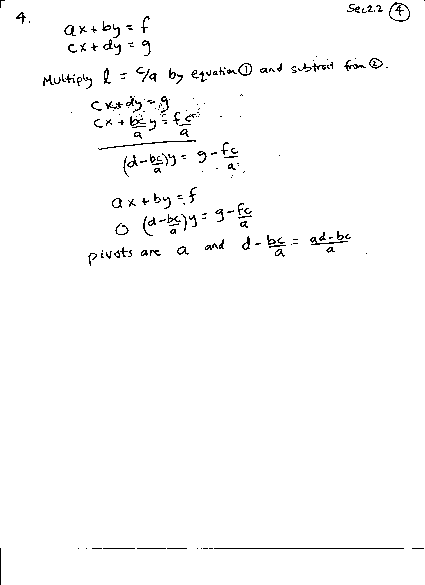 Sec 2.2 ④
4.
ax + by = f
cx + dy = g
Multiply l = c/a by equation ① and subtract from ②.
cx + dy = g
cx + bc/a y = fc/a
(d - bc/a)y = g - fc/a
ax + by = f
0 (d - bc/a)y = g - fc/a
pivots are a and d - bc/a = ad-bc/a